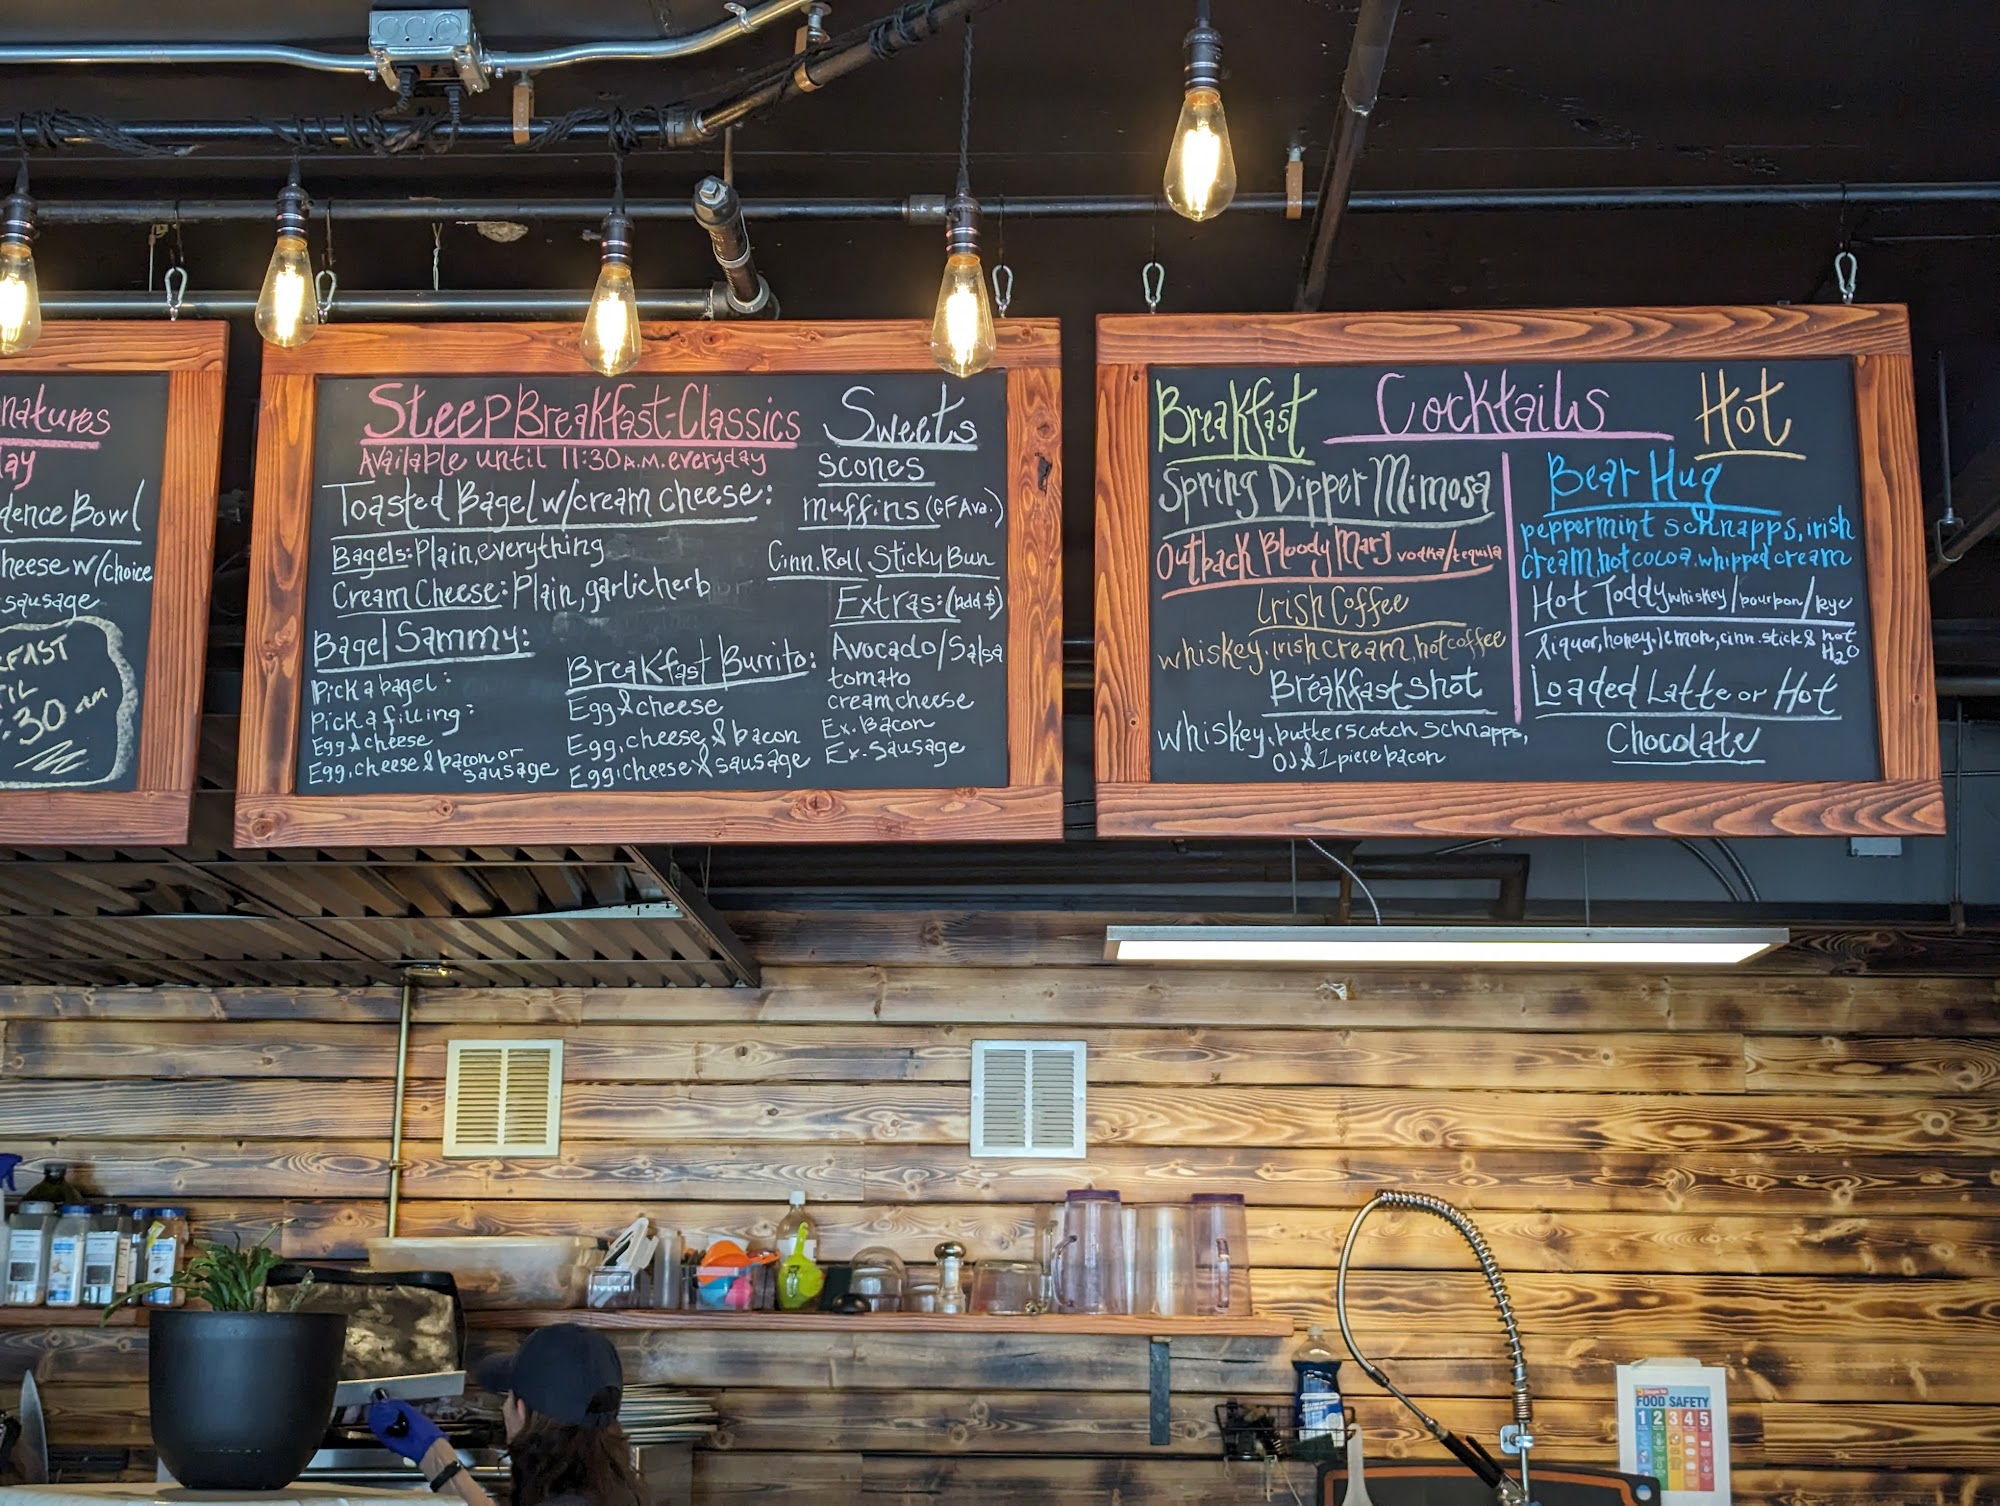 natures
ay
dence Bowl
heese w/choice
sausage
FAST
IL
:30 am
Steep Breakfast-Classics
Available until 11:30 A.M. everyday
Toasted Bagel w/cream cheese:
Bagels: Plain, everything
Cream Cheese: Plain, garlic herb
Bagel Sammy:
Pick a bagel:
Pick a filling:
Egg & cheese
Egg, cheese & bacon or
sausage
Breakfast Burrito:
Egg & cheese
Egg, cheese & bacon
Egg, cheese & sausage
Sweets
Scones
muffins (GF Ava.)
Cinn. Roll Sticky Bun
Extras: (Add $)
Avocado/Salsa
tomato
cream cheese
Ex. Bacon
Ex. Sausage
Breakfast Cocktails Hot
Spring Dipper Mimosa
Outback Bloody Mary vodka/tequila
Irish Coffee
whiskey, irish cream, hot coffee
Breakfast Shot
whiskey, butterscotch schnapps,
OJ & 1 piece bacon
Bear Hug
peppermint schnapps, irish
cream, hot cocoa, whipped cream
Hot Toddy whiskey/bourbon/Rye
liquor, honey, lemon, cinn. stick & hot
H2O
Loaded Latte or Hot
Chocolate
FOOD SAFETY
1 2 3 4 5